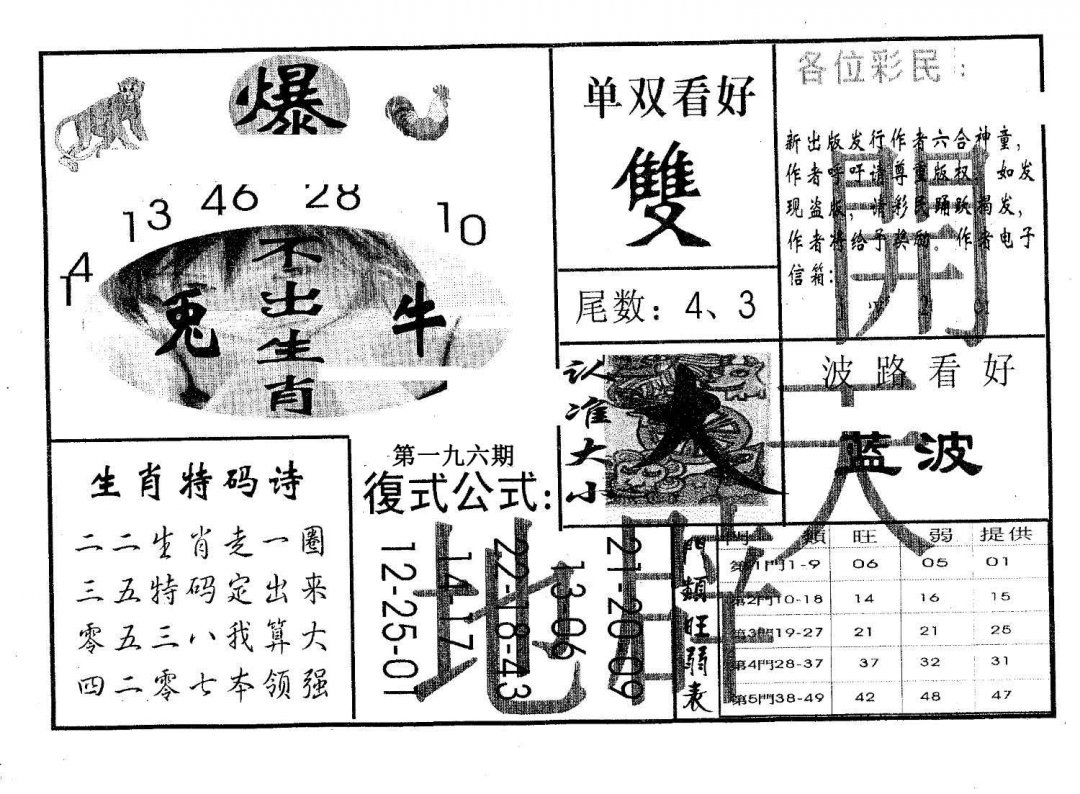 爆
14 13 46 28 10
不出生肖
兔
牛
单双看好
雙
尾数：4、3
各位彩民：
新出版发行作者六合神童，
作者呼吁请尊重版权，如发
现盗版，请彩民踊跃揭发，
作者将给予奖励。作者电子
信箱：
認准大小
大
波路看好
蓝波
生肖特码诗
二二生肖走一圈
三五特码定出来
零五三八我算大
四二零七本领强
第一九六期
復式公式：
12-25-01
14-17
22-18-43
13-06
21-20-09
門類旺弱表
門類 旺 弱 提供
第1門1-9 06 05 01
第2門10-18 14 16 15
第3門19-27 21 21 25
第4門28-37 37 32 31
第5門38-49 42 48 47
天
開
地